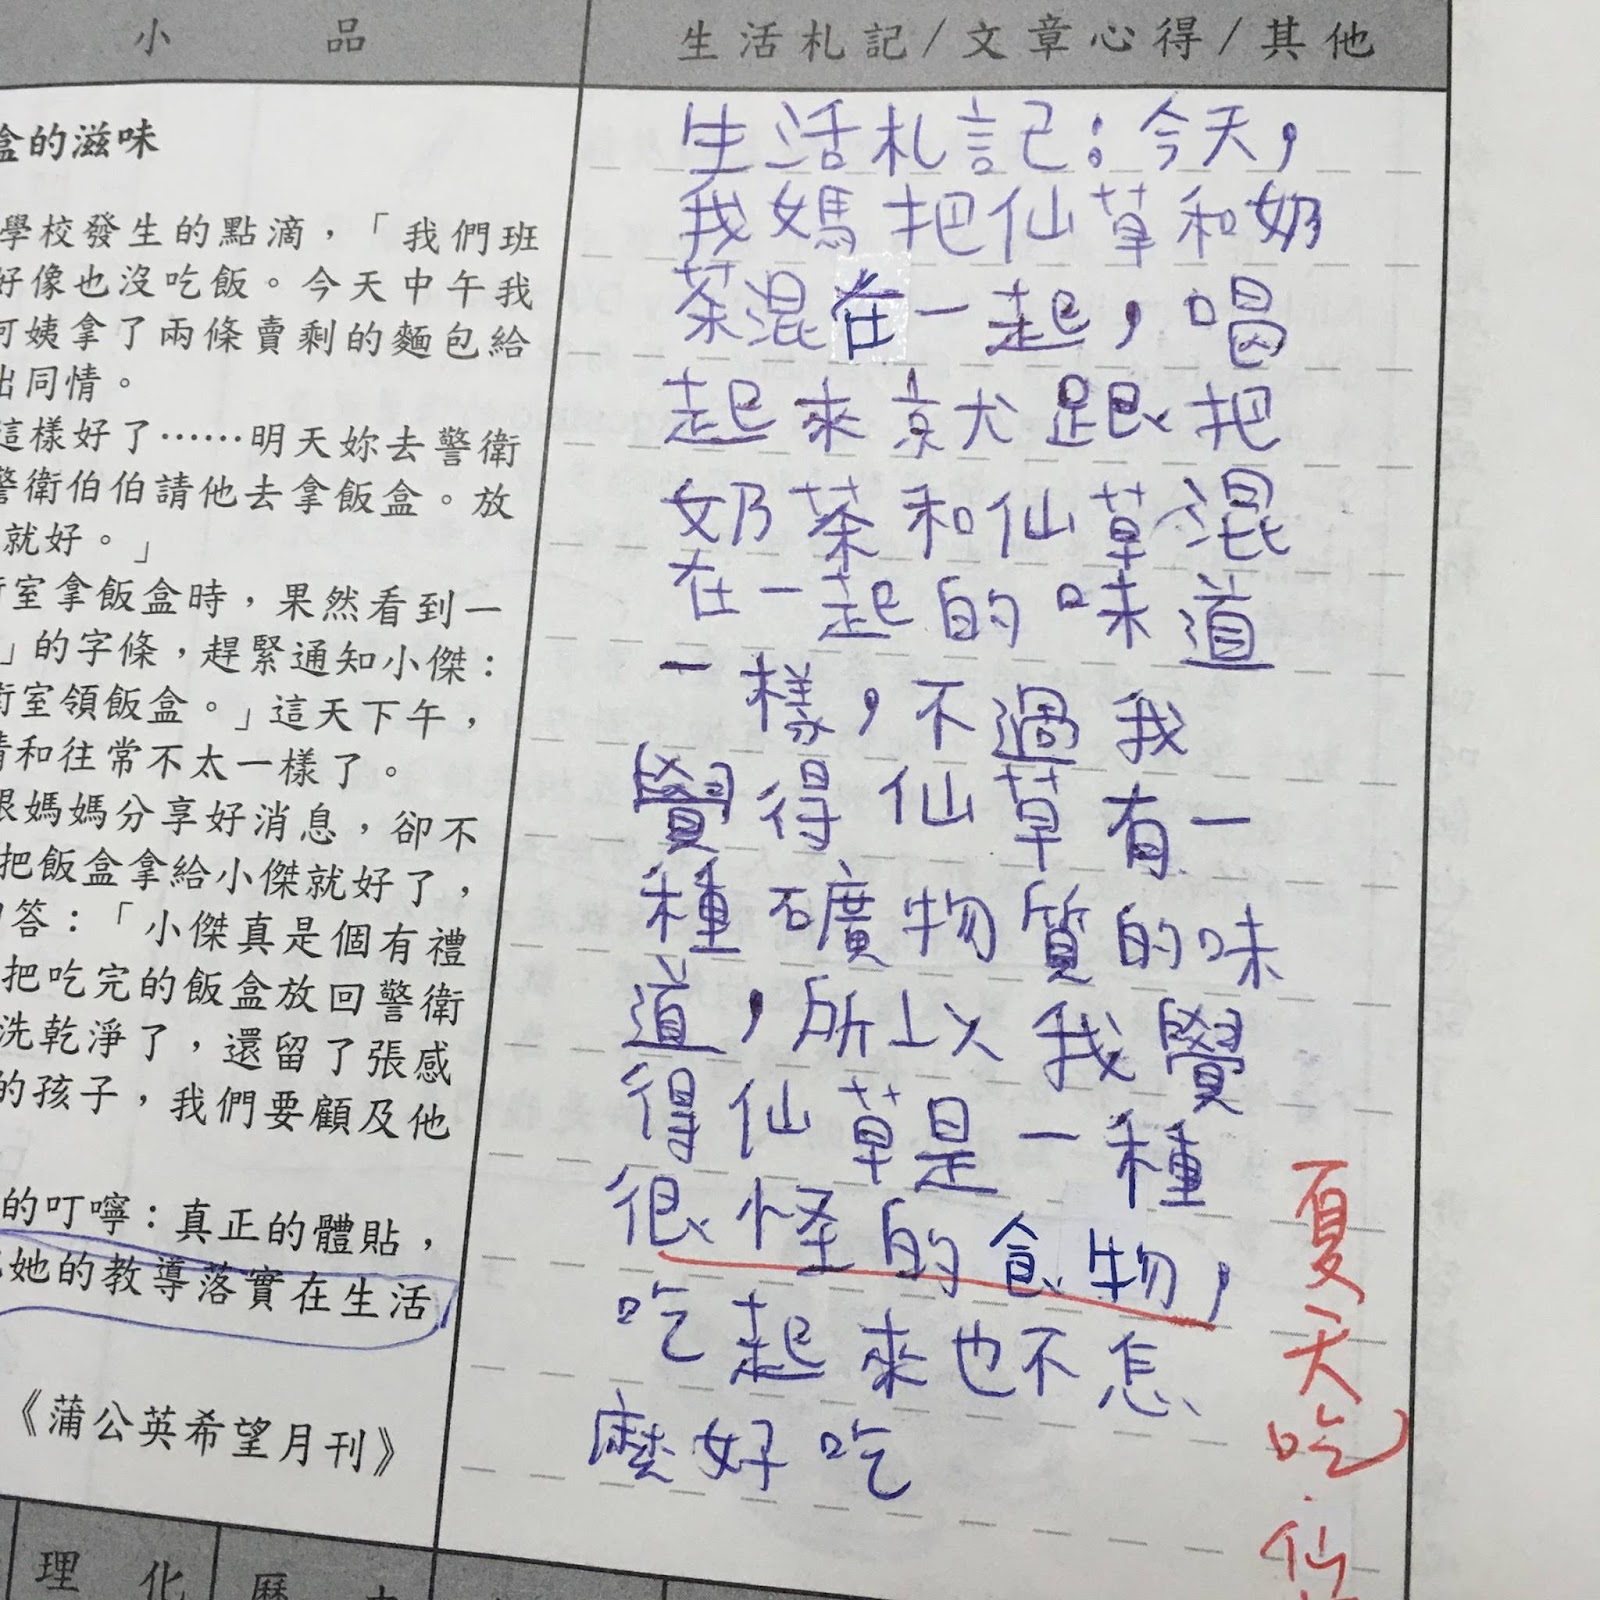 小品
生活札記/文章心得/其他
盒的滋味
學校發生的點滴，「我們班
好像也沒吃飯。今天中午我
阿姨拿了兩條賣剩的麵包給
出同情。
這樣好了……明天妳去警衛
警衛伯伯請他去拿飯盒。放
就好。」
衛室拿飯盒時，果然看到一
」的字條，趕緊通知小傑：
衛室領飯盒。」這天下午，
情和往常不太一樣了。
跟媽媽分享好消息，卻不
把飯盒拿給小傑就好了，
回答：「小傑真是個有禮
把吃完的飯盒放回警衛
洗乾淨了，還留了張感
的孩子，我們要顧及他
的叮嚀：真正的體貼，
她的教導落實在生活
《蒲公英希望月刊》
生活札記：今天，
我媽把仙草和奶
茶混在一起，喝
起來就跟把
奶茶和仙草混
在一起的味道
一樣，不過我
覺得仙草有一
種礦物質的味
道，所以我覺
得仙草是一種
很怪的食物，
吃起來也不怎
麼好吃
夏天吃仙
理化